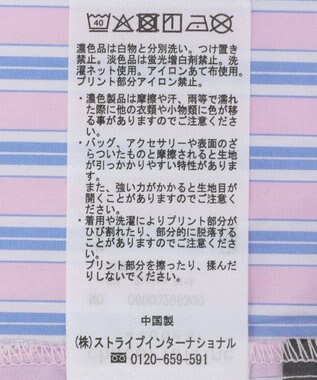 40
濃色品は白物と分別洗い。つけ置き
禁止。淡色品は蛍光増白剤禁止。洗
濯ネット使用。アイロンあて布使用。
プリント部分アイロン禁止。
・濃色製品は摩擦や汗、雨等で濡れ
た際に他の衣類や小物類に色が移
る事がありますのでご注意くださ
い。
・バッグ、アクセサリーや表面のざ
らついたものと摩擦されると生地
が引っかかりやすい特性がありま
す。
また、強い力がかかると生地目が
開くことがありますのでご注意く
ださい。
・着用や洗濯によりプリント部分が
ひび割れたり、部分的に脱落する
ことがあります。
プリント部分を擦ったり、揉んだ
りしないでください。
中国製
(株)ストライプインターナショナル
0120-659-591